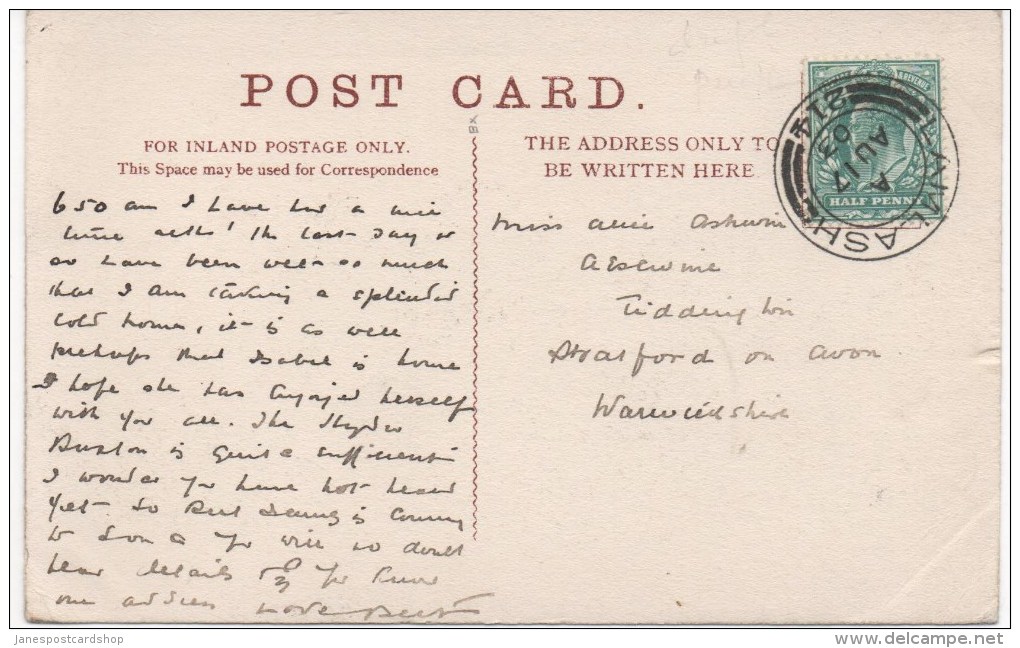 POST CARD.
FOR INLAND POSTAGE ONLY.
This Space may be used for Correspondence
THE ADDRESS ONLY TO
BE WRITTEN HERE
HALF PENNY
214
AU 17
03
650 am I have had a nice
time
so have been well so much
that I am taking a splendid
cold home, it is as well
perhaps that Isabel is home
I hope she has enjoyed herself
with you all. The Hydro
Buxton is quite sufficient
I wonder you have not heard
yet. So Bert is coming
to you will no doubt
hear details if you know
address Love Bert
Miss Alice Ashwin
Tiddington
Stratford on Avon
Warwickshire
Janespostcardshop